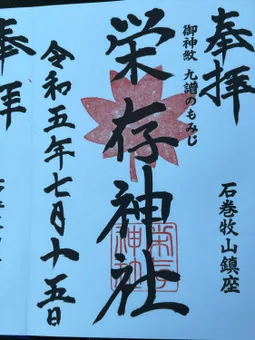 奉拝
石巻牧山鎮座
御神紋 九譜のもみじ
栄存神社
令和五年七月十五日
奉拝